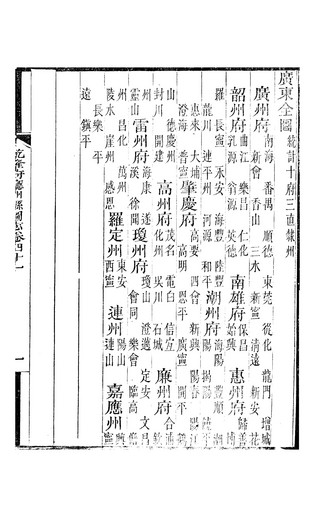 廣東全圖 統計十府三直隸州
廣州府 南海 番禺 順德 東莞 從化 龍門 增城 新會 香山 三水 新寧 清遠 新安 花
韶州府 曲江 樂昌 仁化 乳源 翁源 英德 南雄府 保昌 始興 惠州府 歸善 博
羅 長寧 永安 海豐 陸豐 龍川 連平州 河源 和平 潮州府 海陽 豐順 潮陽 揭陽 饒平
惠來 大埔 澄海 普寧 肇慶府 高要 四會 新興 陽春 陽江 高明 恩平 廣寧 開平 鶴
山 德慶州 封川 開建 高州府 茂名 電白 信宜 化州 吳川 石城 廉州府 合浦 欽
州 靈山 雷州府 海康 遂溪 徐聞 瓊州府 瓊山 澄邁 定安 文昌 會同 樂會 臨高 儋
州 昌化 萬州 陵水 崖州 感恩 羅定州 東安 西寧 連州 陽山 連山 嘉應州 興寧
長樂 平遠 鎮平
乾隆府廳州縣圖志卷四十一 一